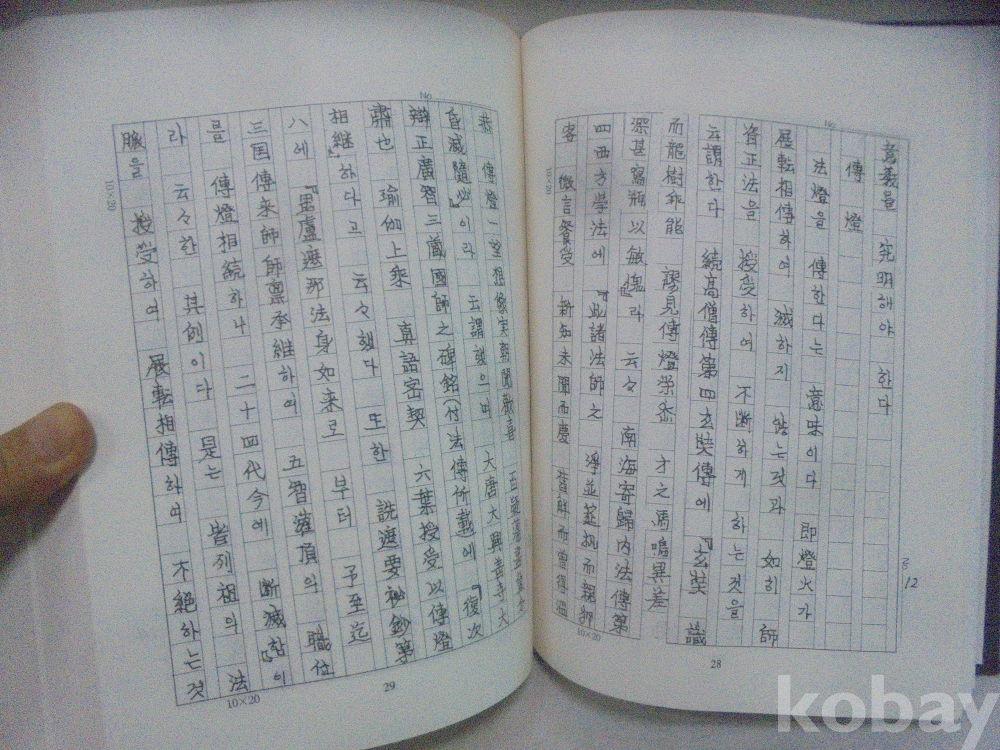 意義를 究明해야 한다
傳燈
法燈을 傳한다는 意味이다 即燈火가
展転相傳하여 滅하지 않는것과 如히 師
資正法을 授受하여 不断하게 하는것을
云謂한다 続高僧傳第四玄奘傳에 『玄奘 識
而龍樹 謬見傳燈 才之馬鳴異差
深甚寫瓶以敏愧』라 云々 南海寄歸内法傳第
四西方学法에 『此諸法師之 淨並
客 微言餐受 新知未聞而慶
28
12
恭 傳燈一望想 実朝聞歡喜
昏滅隨必』이라 云謂했으며 大唐大興善寺大
辯正廣智三藏國師之碑銘(付法傳所載)에 『復次
肅也 瑜伽上乘 真語密契 六葉授受以傳燈
相継』하다고 云々했다 또한 詵遮要秘鈔第
八에 『毘盧遮那法身如来로 부터 予至迄
三国傳来師師禀承継하여 五智灌頂의 職位
를 傳燈相続하나 二十四代今에 断滅함』이
라 云々한 其例이다 是는 皆列祖의 法
脈을 授受하여 展転相傳하여 不絶하는 것
29
No
No
10×20
10×20
10×20
10×20
kobay